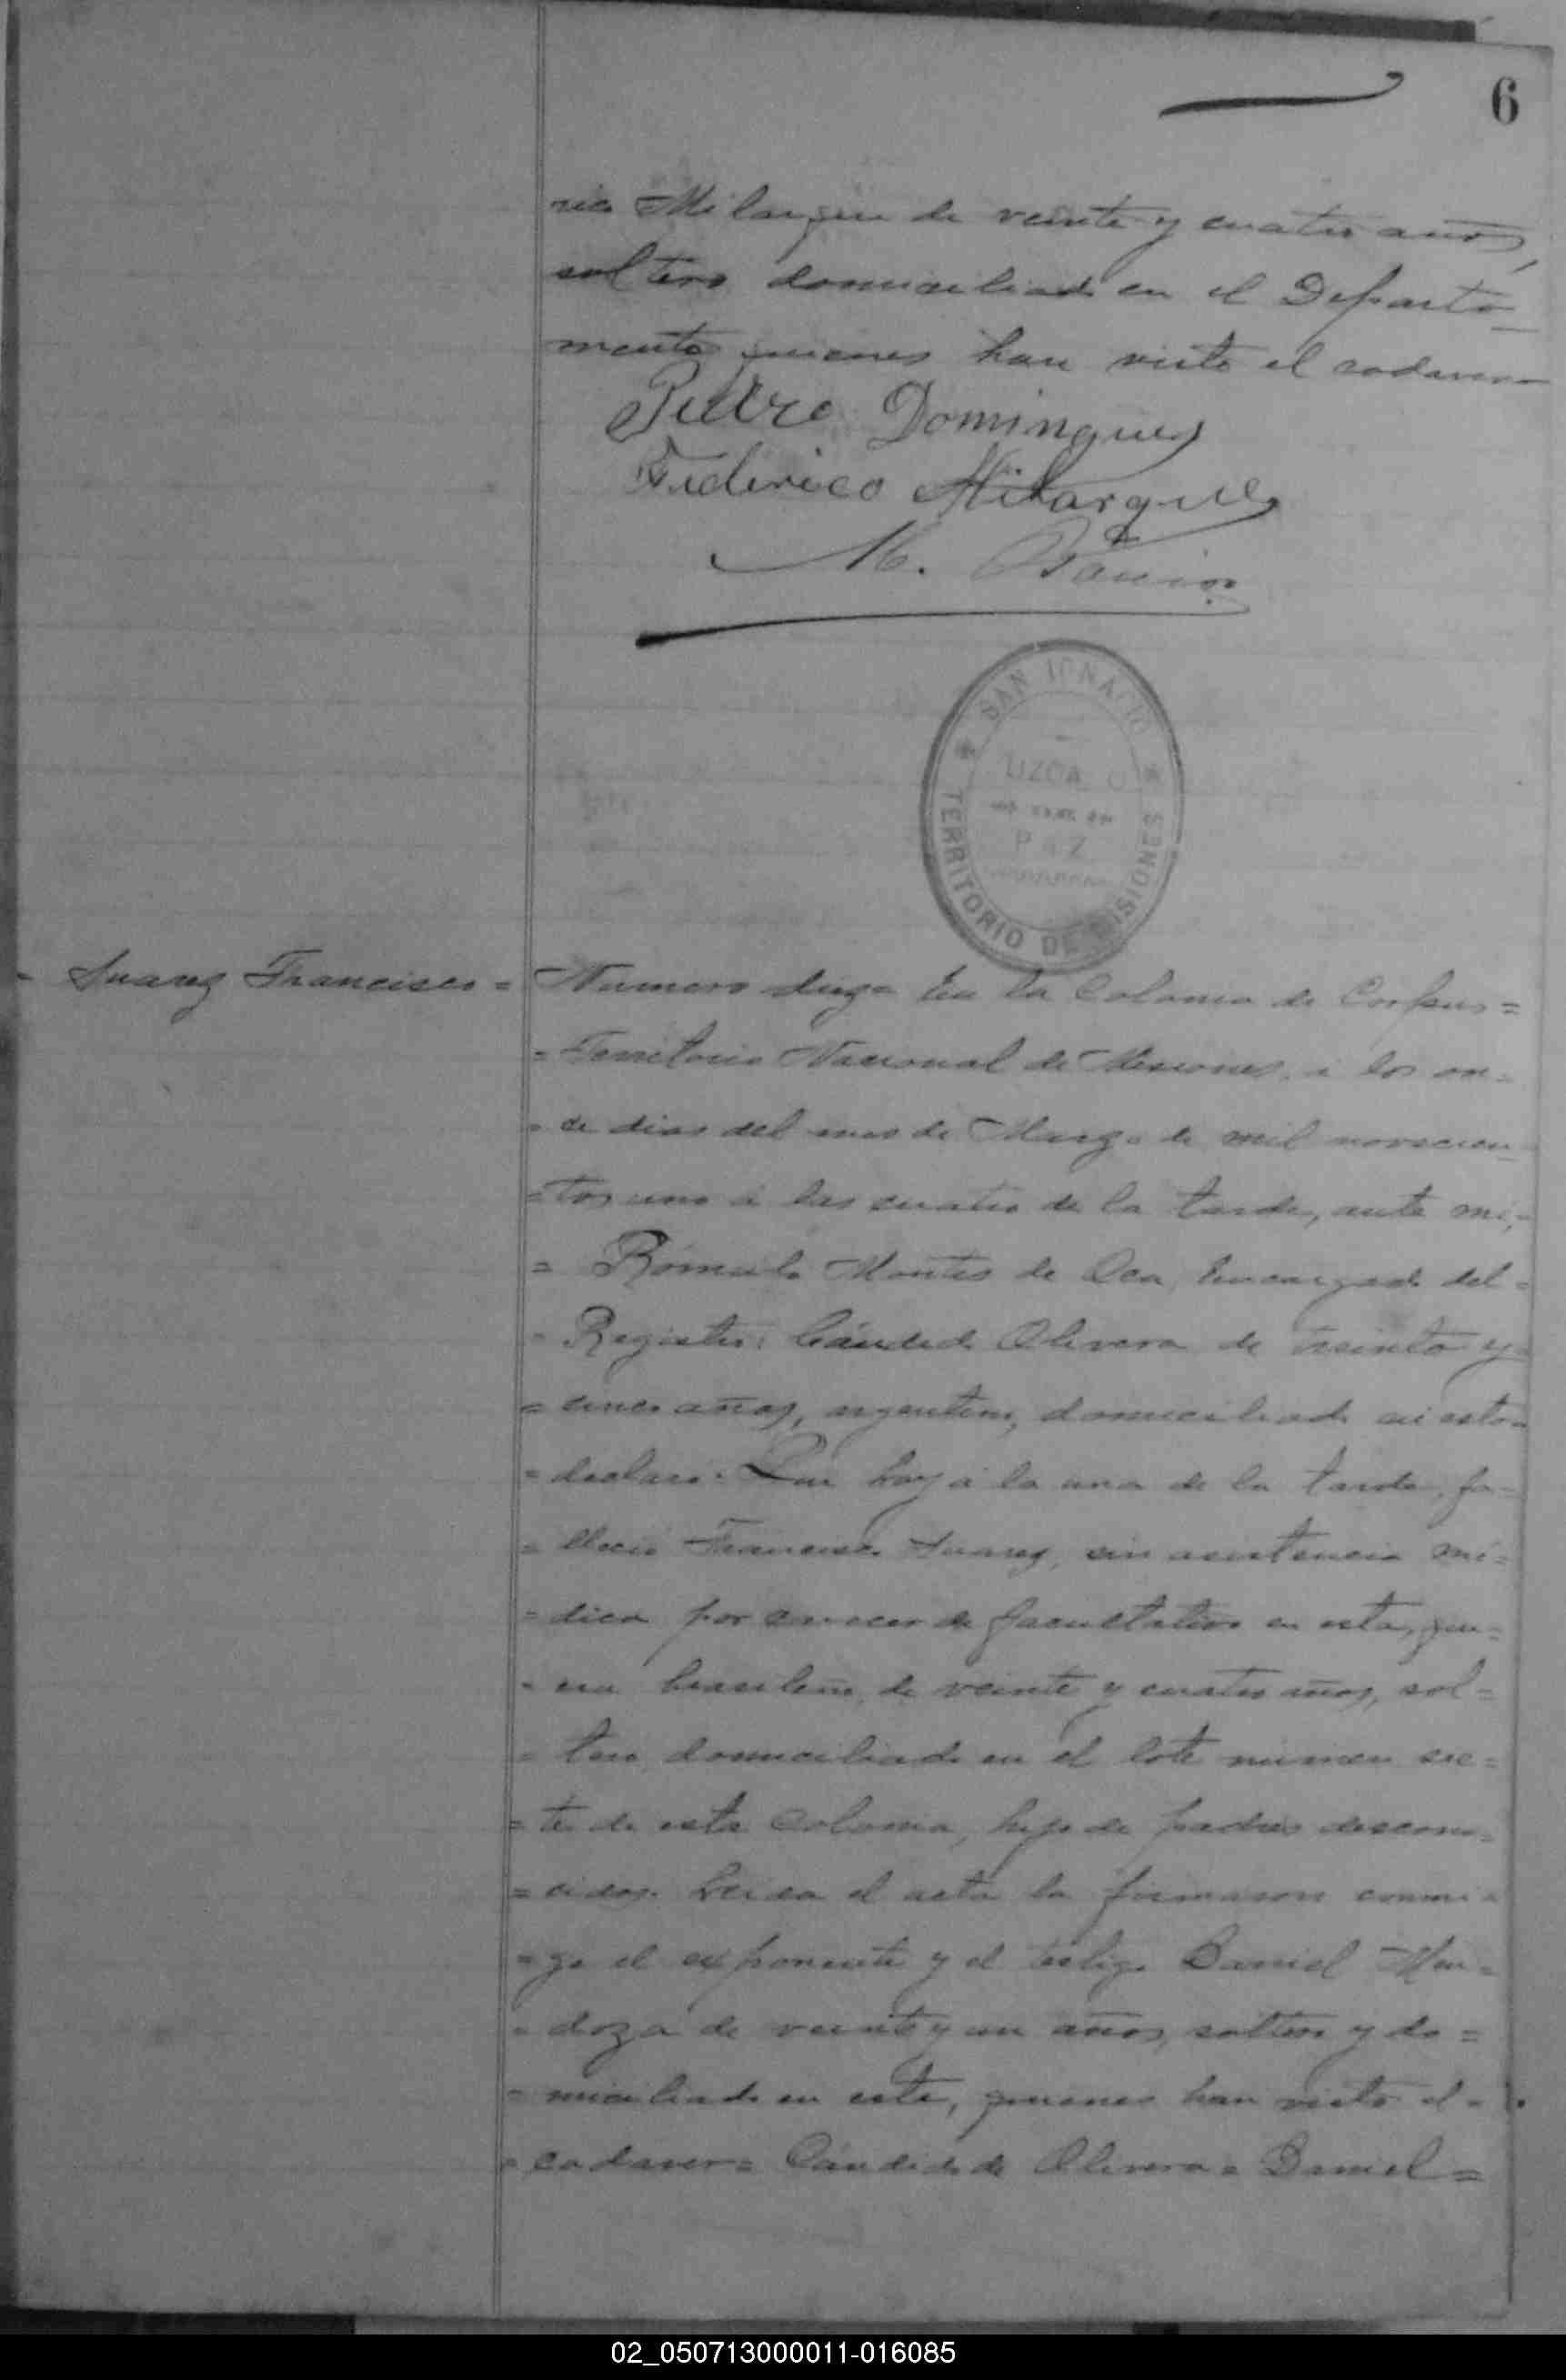 6
rico Milarque de veinte y cuatro años,
soltero domiciliado en el Departa-
mento quienes han visto el cadaver-
Pedro Domingues
Federico Milarque
M.
SAN IGNACIO
PAZ
TERRITORIO DE MISIONES
- Suarez Francisco = Numero diez= En la Colonia de Corpus=
= Territorio Nacional de Misiones, á los on-
- ce dias del mes de Marzo de mil novecien-
=tos uno á las cuatro de la tarde, ante mi,-
= Rómulo Montes de Oca, Encargado del -
= Registro: Cándido Olivera de treinta y=
= cinco años, argentino, domiciliado en esta=
= declaró: Que hoy á la una de la tarde, fa-
= lleció Francisco Suarez, sin asistencia mé=
= dica por carecer de facultativo en esta, que=
- era brasileño, de veinte y cuatro años, sol=
= tero domiciliado en el lote numero sie=
= te de esta Colonia, hijo de padres descono=
= cidos. Leida el acta la firmaron conmi=
= go el exponente y el testigo Daniel Men=
= doza de veinte y un años, soltero y do=
= miciliado en esta, quienes han visto el=
= cadaver= Cándido de Olivera= Daniel=
02_050713000011-016085